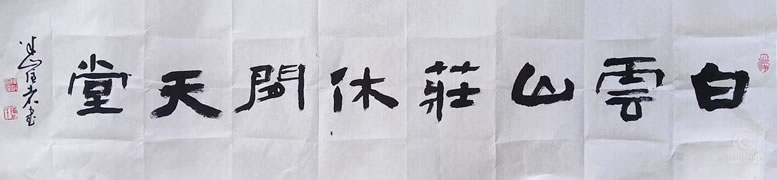 白雲山莊休閒天堂